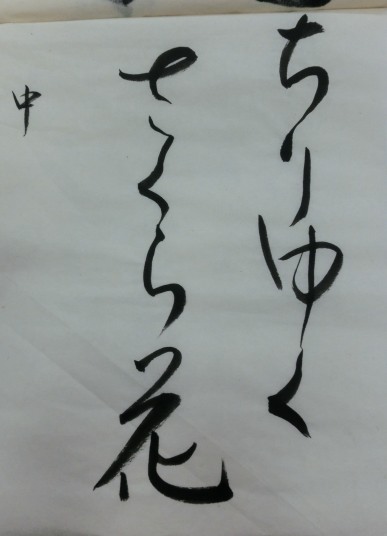 ちりゆく
さくら花
中